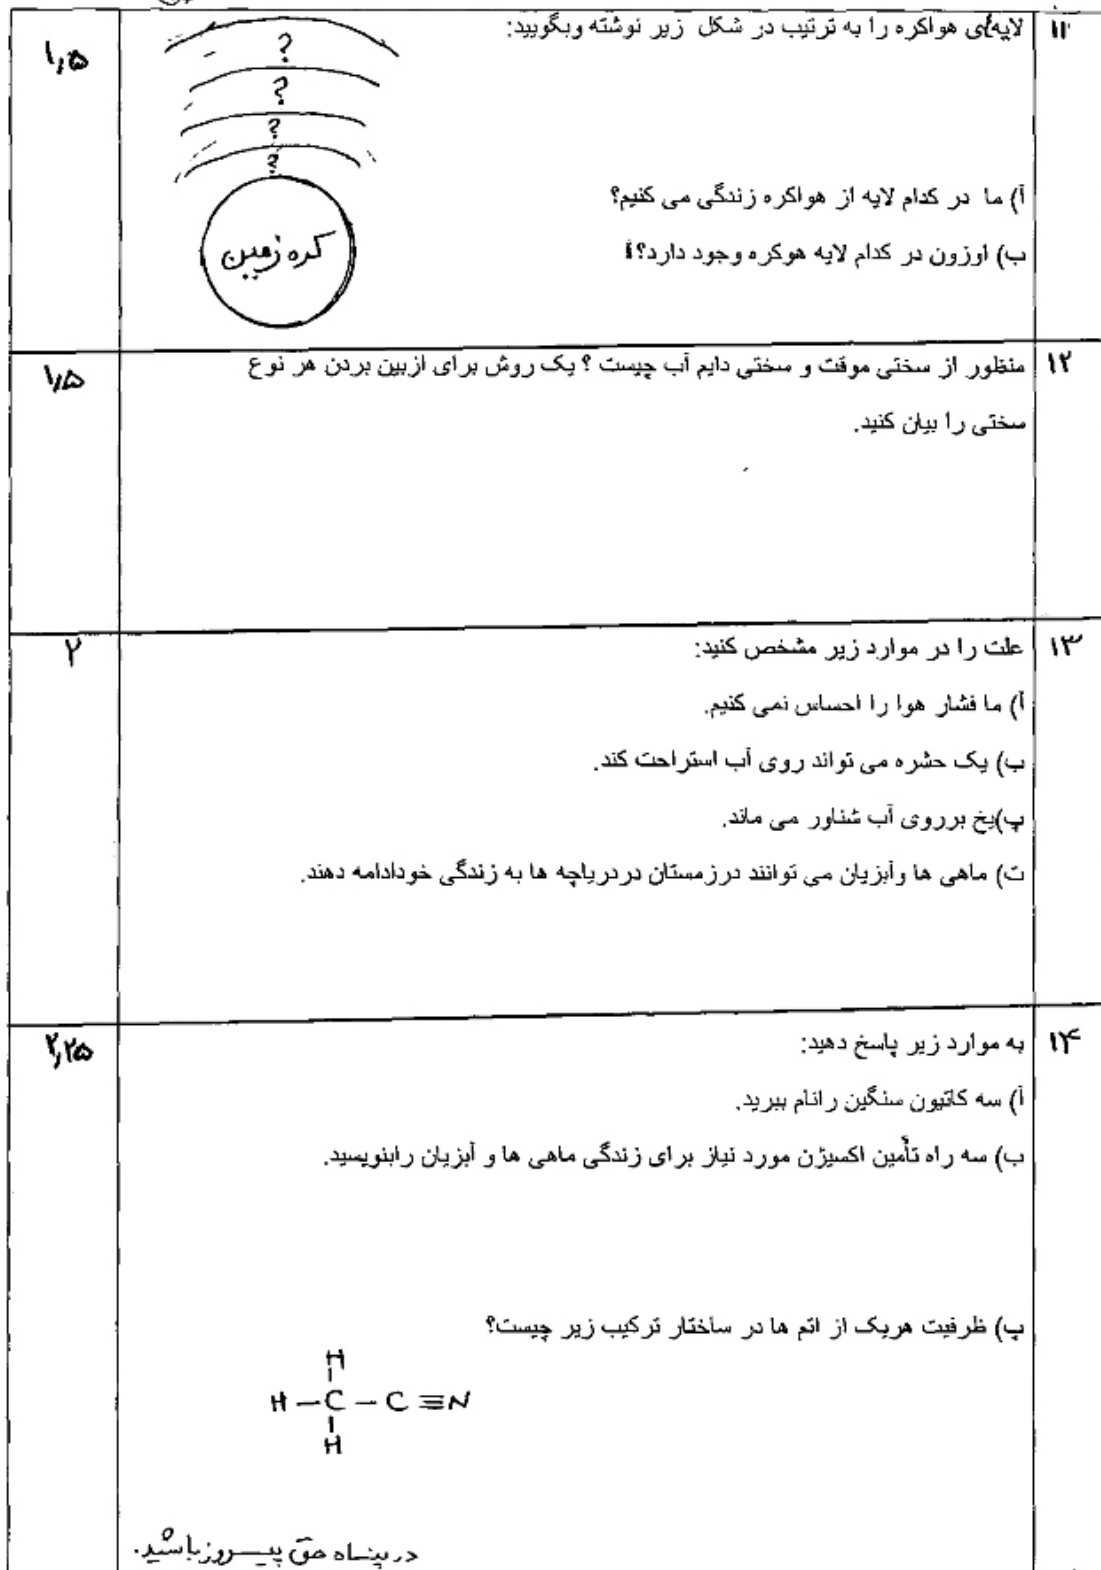 ۱۱ لایه‌ی هواکره را به ترتیب در شکل زیر نوشته وبگویید:
۱٫۵
?
?
?
?
کره زمین
آ) ما در کدام لایه از هواکره زندگی می کنیم؟
ب) اوزون در کدام لایه هوکره وجود دارد؟
۱۲ منظور از سختی موقت و سختی دایم آب چیست ؟ یک روش برای ازبین بردن هر نوع
۱٫۵
سختی را بیان کنید.
۱۳ علت را در موارد زیر مشخص کنید:
۲
آ) ما فشار هوا را احساس نمی کنیم.
ب) یک حشره می تواند روی آب استراحت کند.
پ)یخ برروی آب شناور می ماند.
ت) ماهی ها وآبزیان می توانند درزمستان دردریاچه ها به زندگی خودادامه دهند.
۱۴ به موارد زیر پاسخ دهید:
۲٫۲۵
آ) سه کاتیون سنگین رانام ببرید.
ب) سه راه تأمین اکسیژن مورد نیاز برای زندگی ماهی ها و آبزیان رابنویسید.
پ) ظرفیت هریک از اتم ها در ساختار ترکیب زیر چیست؟
H
H – C – C ≡ N
H
در پناه حق پیروز باشید.